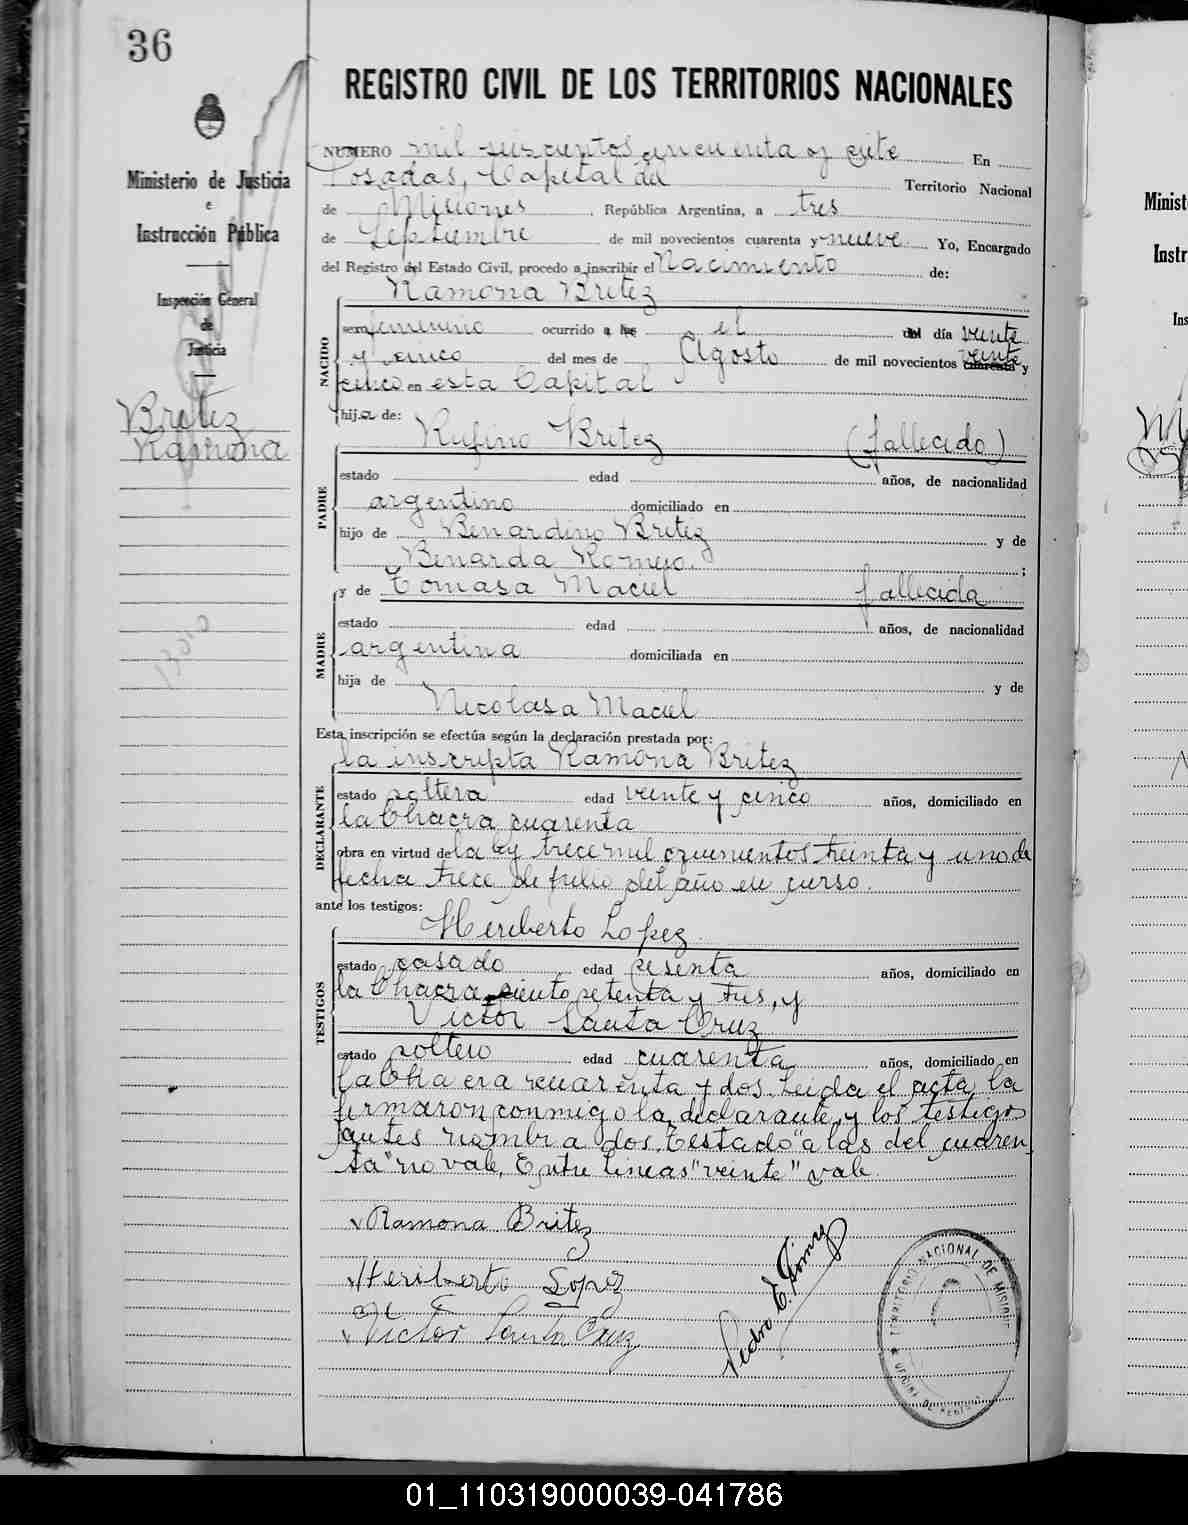 36
REGISTRO CIVIL DE LOS TERRITORIOS NACIONALES
Ministerio de Justicia
e
Instrucción Pública
Inspección General
de
Justicia
Britez
Ramona
NUMERO mil seiscientos cincuenta y siete En
Posadas, Capital del Territorio Nacional
de Misiones, República Argentina, a tres
de Septiembre de mil novecientos cuarenta y nueve Yo, Encargado
del Registro del Estado Civil, procedo a inscribir el Nacimiento de:
Ramona Britez
NACIDO
sexo femenino ocurrido a las el del día veinte
y cinco del mes de Agosto de mil novecientos veinte cuarenta y
cinco en esta Capital
hija de:
Rufino Britez (fallecido)
PADRE
estado edad años, de nacionalidad
argentino domiciliado en
hijo de Benardino Britez y de
Benarda Romero. ;
y de Tomasa Maciel fallecida
MADRE
estado edad años, de nacionalidad
argentina domiciliada en
hija de y de
Nicolasa Maciel
Esta inscripción se efectúa según la declaración prestada por:
la inscripta Ramona Britez
DECLARANTE
estado soltera edad veinte y cinco años, domiciliado en
la Chacra cuarenta
obra en virtud de la ley trece mil quinientos treinta y uno de
fecha trece de julio del año en curso.
ante los testigos:
Heriberto Lopez
TESTIGOS
estado casado edad sesenta años, domiciliado en
la Chacra ciento setenta y tres, y
Victor Santa Cruz
estado soltero edad cuarenta años, domiciliado en
la Chacra cuarenta y dos. Leida el acta la
firmaron conmigo la declarante y los testigos
antes nombrados. Testado "a las del cuaren-
ta" no vale. Entre lineas "veinte" vale.
Ramona Britez
Heriberto Lopez
Victor Santa Cruz
Pedro E. Gómez
TERRITORIO NACIONAL DE MISIONES
01_110319000039-041786